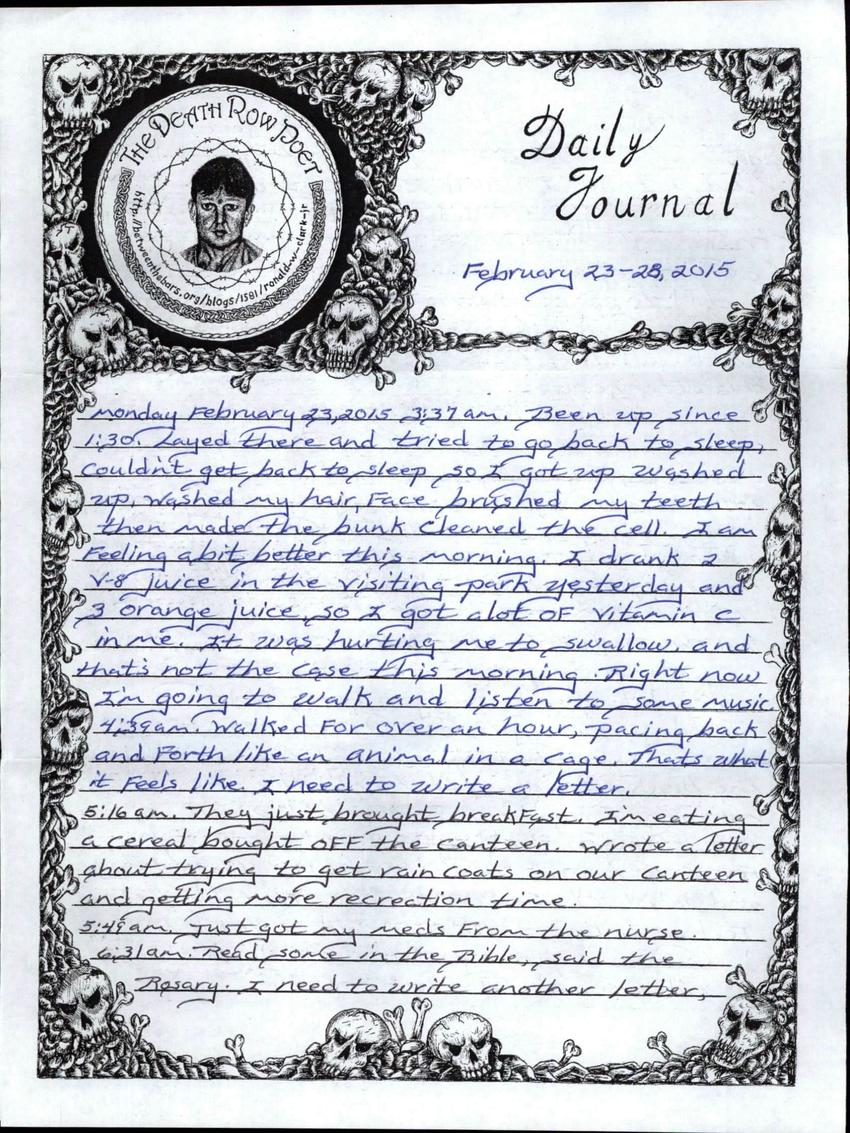 THE DEATH ROW POET
http://betweenthebars.org/blogs/1581/ronald-w-clark-jr
Daily
Journal
February 23-28, 2015
Monday February 23, 2015 3:37 am. Been up since
1:30. Layed there and tried to go back to sleep,
couldn't get back to sleep so I got up washed
up, washed my hair, Face brushed my teeth
then made the bunk cleaned the cell. I am
Feeling a bit better this morning. I drank 2
V-8 juice in the visiting park yesterday and
3 orange juice, so I got alot oF vitamin c
in me. It was hurting me to swallow, and
that's not the case this morning. Right now
I'm going to walk and listen to some music
4:39am. Walked For over an hour, pacing back
and Forth like an animal in a cage. Thats what
it Feels like. I need to write a letter.
5:16 am. They just brought breakFast. I'm eating
a cereal bought oFF the canteen. Wrote a letter
about trying to get rain coats on our canteen
and getting more recreation time.
5:49am. Just got my meds From the nurse.
6:31am. Read some in the Bible, said the
Rosary. I need to write another letter,